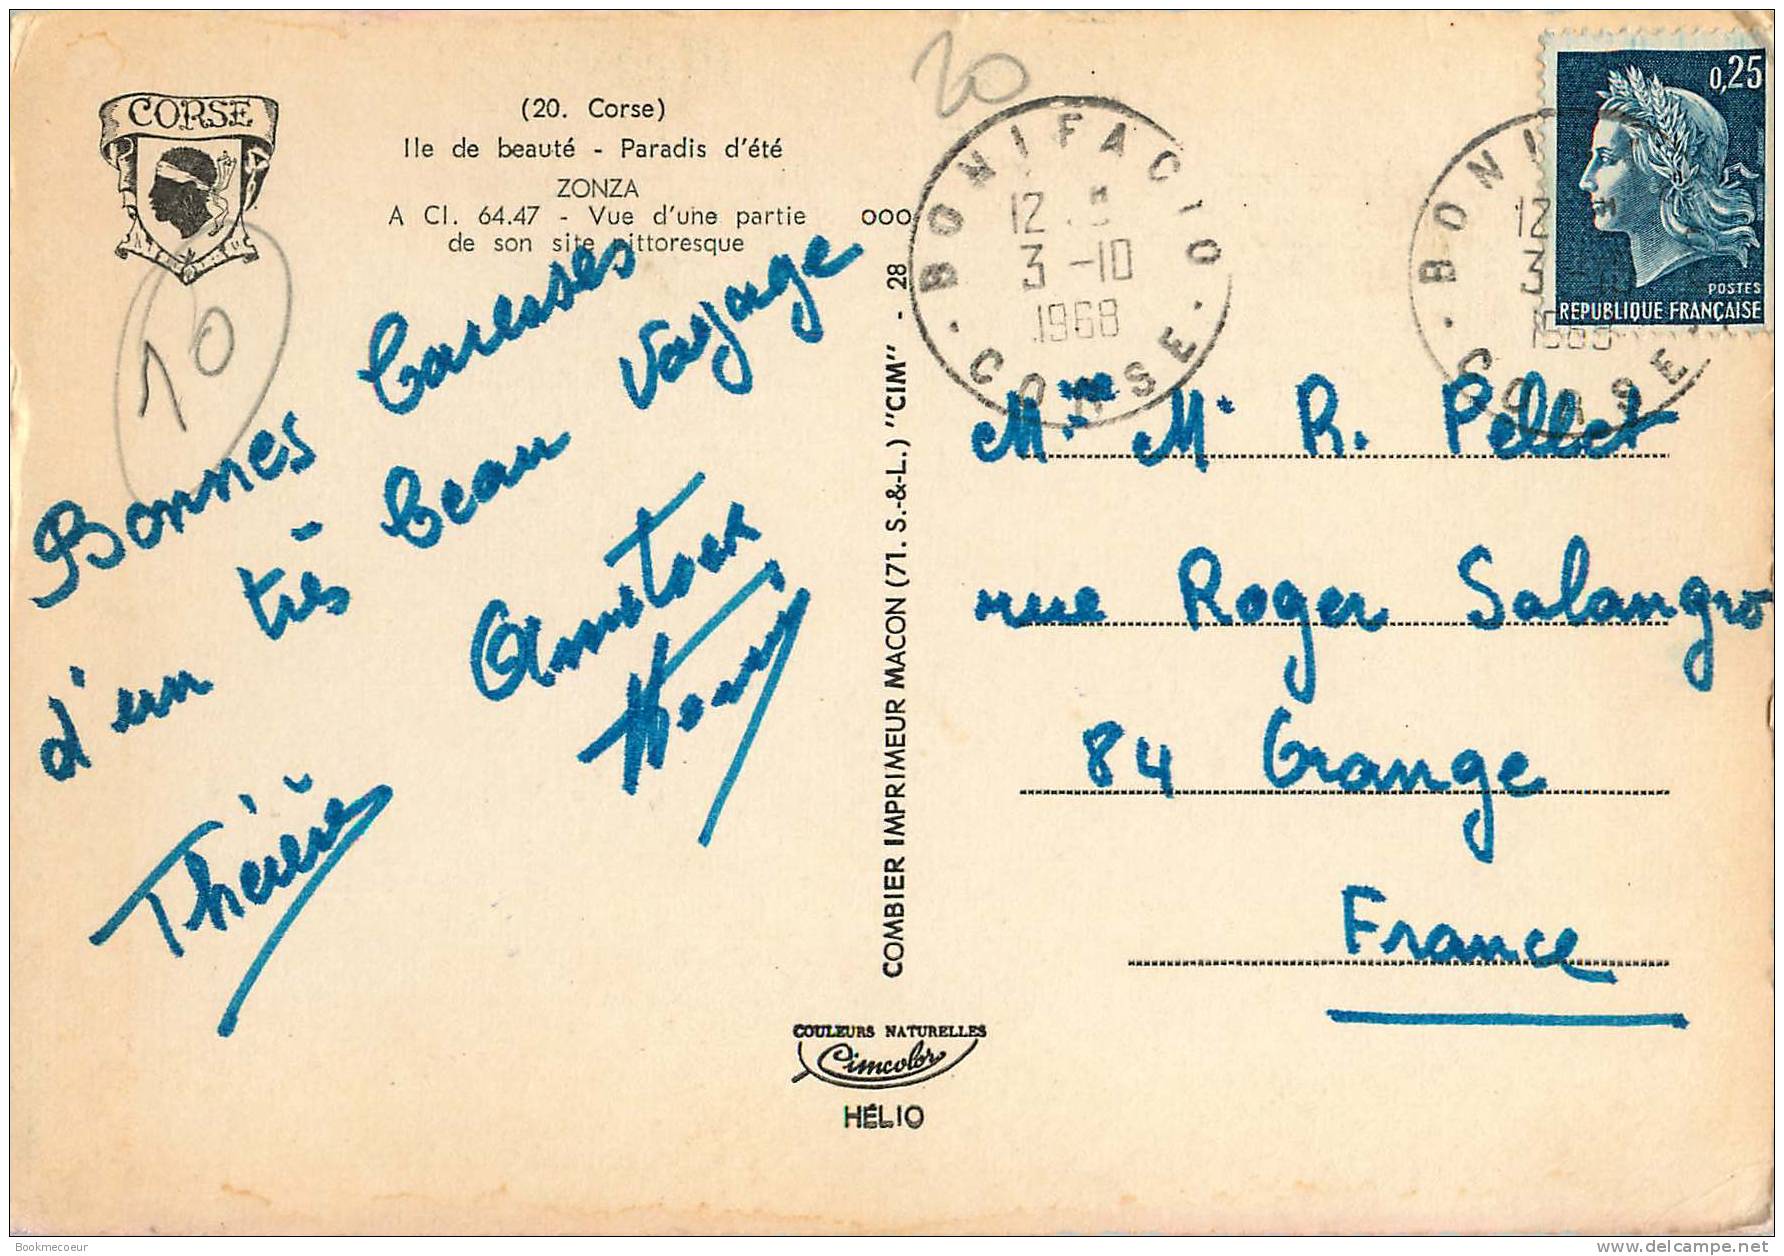 CORSE
(20. Corse)
Ile de beauté - Paradis d'été
ZONZA
A Cl. 64.47 - Vue d'une partie
de son site pittoresque
20
10
Bonnes Caresses
d'un très beau voyage
Thérèse
COMBIER IMPRIMEUR MACON (71. S.-&-L.) "CIM" - 28
000
COULEURS NATURELLES
Cimcolor
HÉLIO
BONIFACIO
12
3 -10
1968
CORSE
BONI
12
3 -
1968
CORSE
0,25
POSTES
REPUBLIQUE FRANÇAISE
Mme Mr R. Pellet
rue Roger Salangro
84 Orange
France
Bookmecoeur
www.delcampe.net